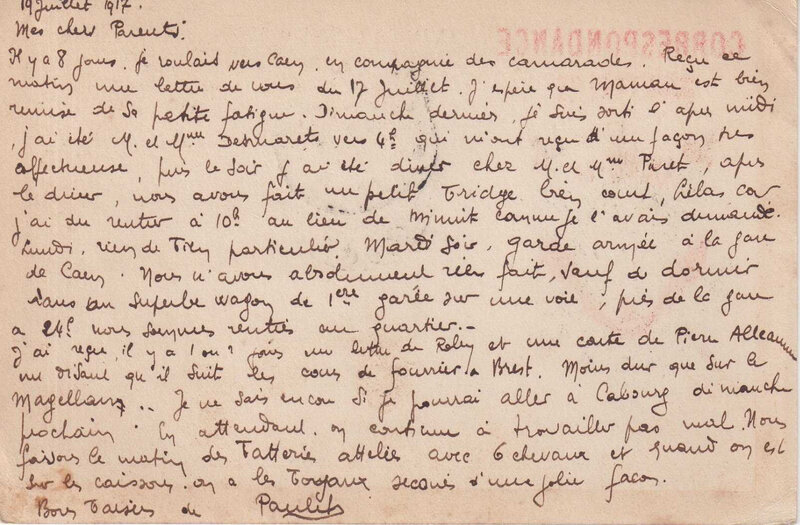 19 Juillet 1917.
CORRESPONDANCE
Mes chers Parents.
Il y a 8 jours, je roulais vers Caen, en compagnie des camarades. Reçu ce
matin une lettre de vous du 17 Juillet. J'espère que Maman est bien
remise de sa petite fatigue. Dimanche dernier, je suis sorti l'après midi
, j'ai été M. et Mme Desmarets vers 4h qui m'ont reçu d'un façon très
affectueuse, puis le soir j'ai été diner chez M. et Mme Paret, après
le diner, nous avons fait un petit bridge bien court, hélas car
j'ai du rentrer à 10h au lieu de Minuit comme je l'avais demandé.
Lundi, rien de bien particulier. Mardi soir, garde armée à la gare
de Caen. Nous n'avons absolument rien fait, sauf de dormir
dans un superbe wagon de 1ère garée sur une voie, près de la gare
a 24h nous sommes rentrés au quartier.-
J'ai reçu, il y a 1 ou 2 jours un lettre de Roby et une carte de Pierre
me disant qu'il suit les cours de fourrier a Brest. Moins dur que sur le
Magellan... Je ne sais encore si je pourrai aller à Cabourg dimanche
prochain. En attendant. on continue à travailler pas mal. Nous
faisons le matin des batteries attelées avec 6 chevaux et quand on est
sur les caissons. on a les boyaux secoués d'une jolie façon.
Bons baisers de